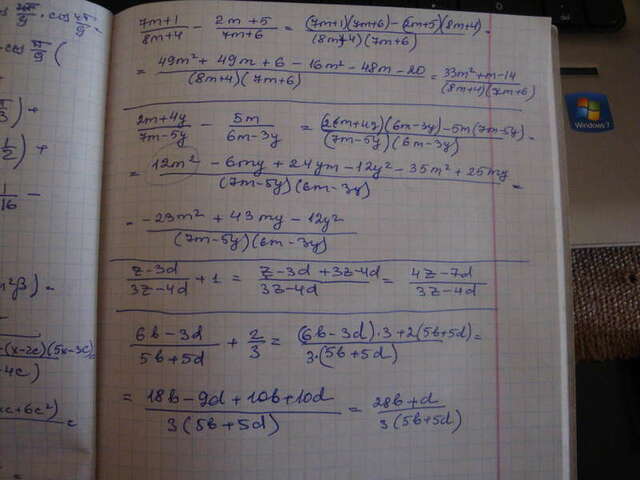 (7m+1)/(8m+4) - (2m+5)/(7m+6) = ((7m+1)(7m+6) - (2m+5)(8m+4))/((8m+4)(7m+6)) =
= (49m² + 49m + 6 - 16m² - 48m - 20)/((8m+4)(7m+6)) = (33m² + m - 14)/((8m+4)(7m+6))
(2m+4y)/(7m-5y) - 5m/(6m-3y) = ((2m+4y)(6m-3y) - 5m(7m-5y))/((7m-5y)(6m-3y)) =
= (12m² - 6my + 24ym - 12y² - 35m² + 25my)/((7m-5y)(6m-3y)) =
= (-23m² + 43my - 12y²)/((7m-5y)(6m-3y))
(z-3d)/(3z-4d) + 1 = (z-3d + 3z-4d)/(3z-4d) = (4z-7d)/(3z-4d)
(6b-3d)/(5b+5d) + 2/3 = ((6b-3d)·3 + 2(5b+5d))/(3·(5b+5d)) =
= (18b - 9d + 10b + 10d)/(3(5b+5d)) = (28b+d)/(3(5b+5d))
Windows 7